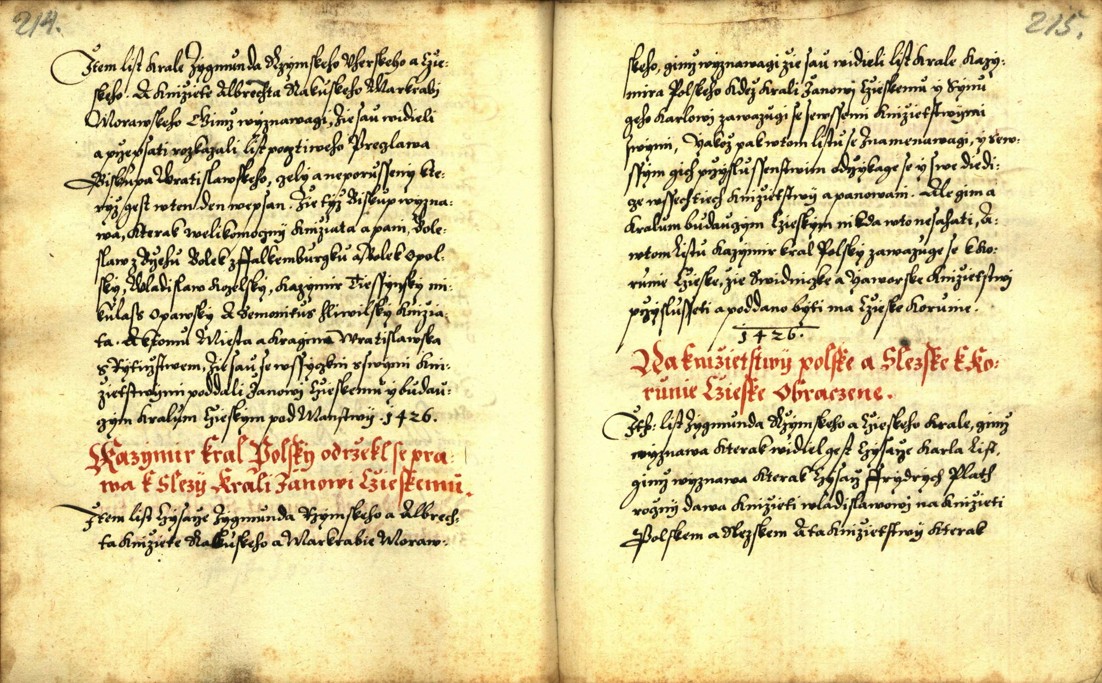 214.
Item list Krale Zygmunda Rzymskeho Vherskeho a Cze:
skeho. A Knižete Albrechta Rakuskeho Markrabi
Morawskeho Gimž wyznawagi, že sau widieli
a przepsati rozkazali list pocztiweho Preglawa
Biskupa Wratislawskeho, czely a neporusseny kte:
ryž gest w ten den wepsan. Že tyž Biskup wyzna:
wa, kterak welikomoczny Knižata a pani, Bole:
slaw z Bžehu Bolek z Ffalkemburgku a Bolek Opol:
sky, Wladislaw Kozelsky, Kazymir Tiessynsky mi:
kulass Opawsky A Zemovitus Hliwitsky Knižia:
ta. A k tomu Miesta a Kragina Wratislawska
s Rytirzstwem, že sau se wssyczkni s swymi Kni:
žietstwymi poddali Janowi Czieskemu y budau:
czym Kralum Czieskym pod Manstwij. 1426.
Kazymir kral Polsky odrzekl se pra:
wa k Slezij Krali Janowi Czieskemu.
Item list Czysarze Zygmunda Rzymskeho a Albrech:
ta Knižete Rakuskeho a Markrabie Moraw:
215.
skeho, gimž wyznawagi že sau widieli list Krale Kazy:
mira Polskeho kdež Krali Janowi Czieskemu y Synu
geho Karlowi zawazugi se sewssemi Knižietstwymi
swymi, Yakož pak w tom listu se znamenawagi, y sew:
ssym gich przyslussenstwim odrzykage se y swe diedi:
ze wssech tiech Knižietstwij a panowani. Ale gim a
Kralum budauczym Czieskym nikda w to nesahati, A:
w tom Listu Kazymir Kral Polsky zawazuge se k Ko:
runie Czieske, že Swidniczke a Yaworske Knižietstwij
przyslusseti a poddano byti ma Czieske Korunie.
1426.
Na knižietstwij polske a Slezske k Ko:
runie Czieske Obraczene.
Itē: list Zygmunda Rzymskeho a Czieskeho Krale, gimž
wyznawa kterak widiel gest Czysarze Karla List,
gimž wyznawa kterak Czysarz Ffrydrych Plath
rocžni dawa Knižeti wladislawowi na Knižieti
Polskem a Slezskem A ta Knižietstwij kterak